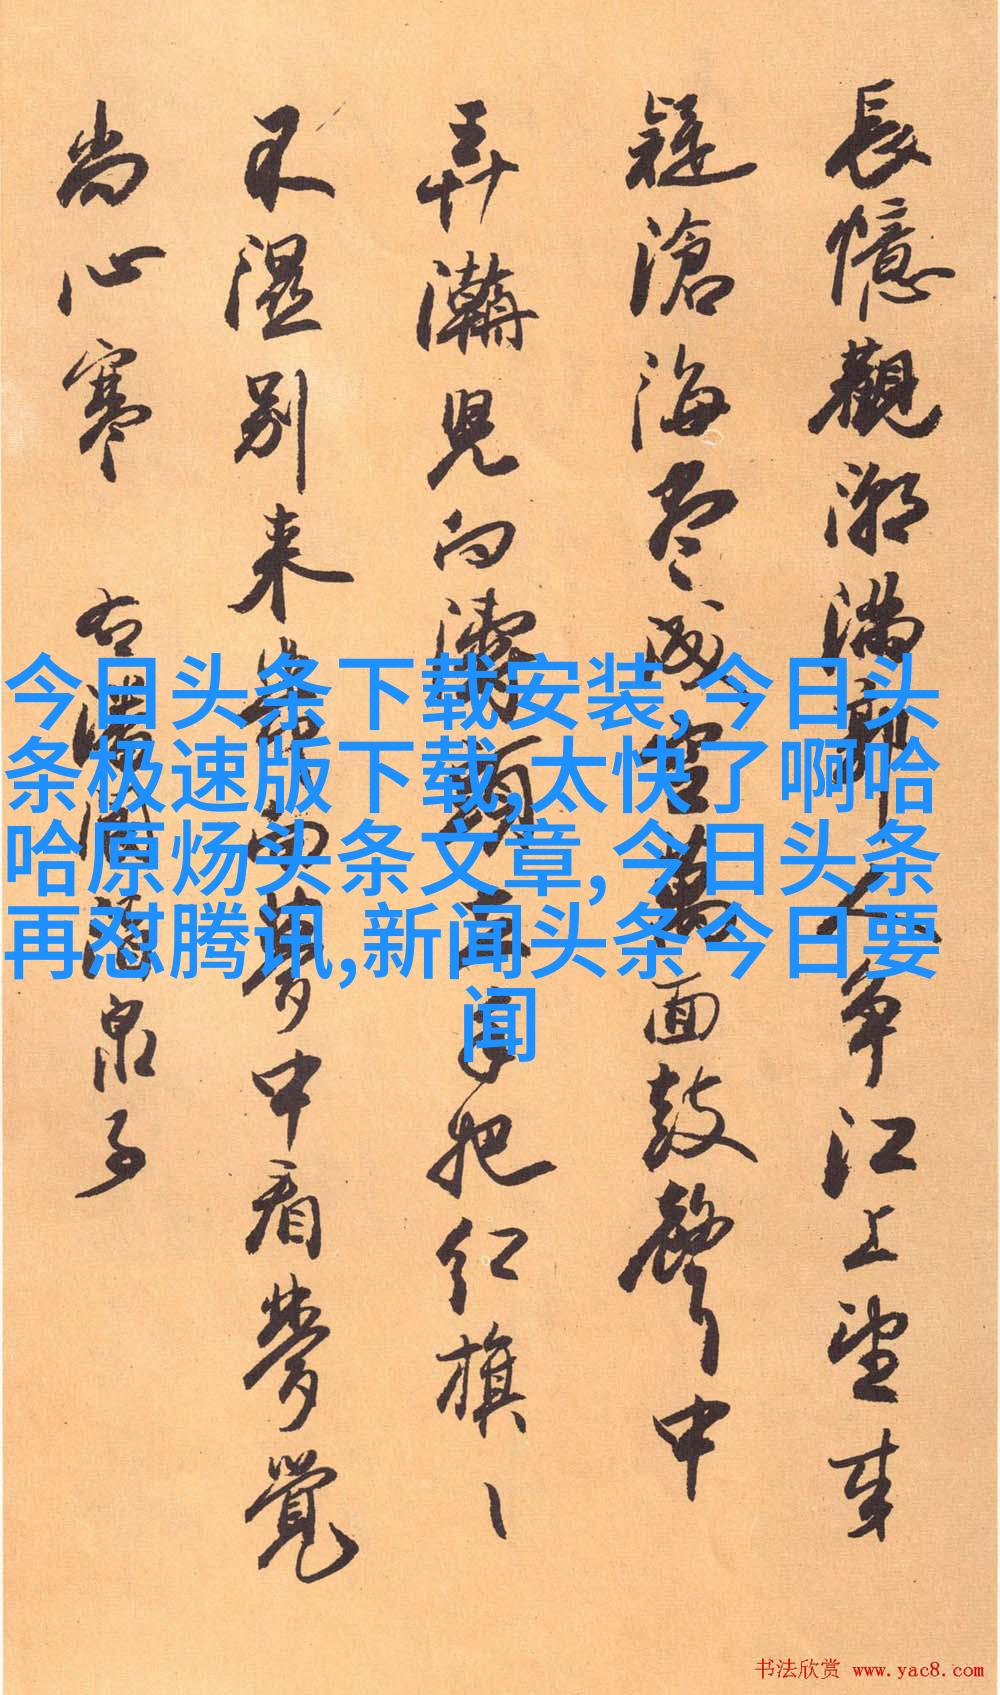 長憶觀潮滿郭人爭江上望来
疑滄海盡成空萬面鼓聲中
弄濤兒向濤頭立手把红旗丶
不濕别来幾向夢中看夢覺
尚心寒 右潘閬酒泉子
今日头条下载安装,今日头
条极速版下载,太快了啊哈
哈原炀头条文章,今日头条
再怼腾讯,新闻头条今日要
闻
书法欣赏 www.yac8.com